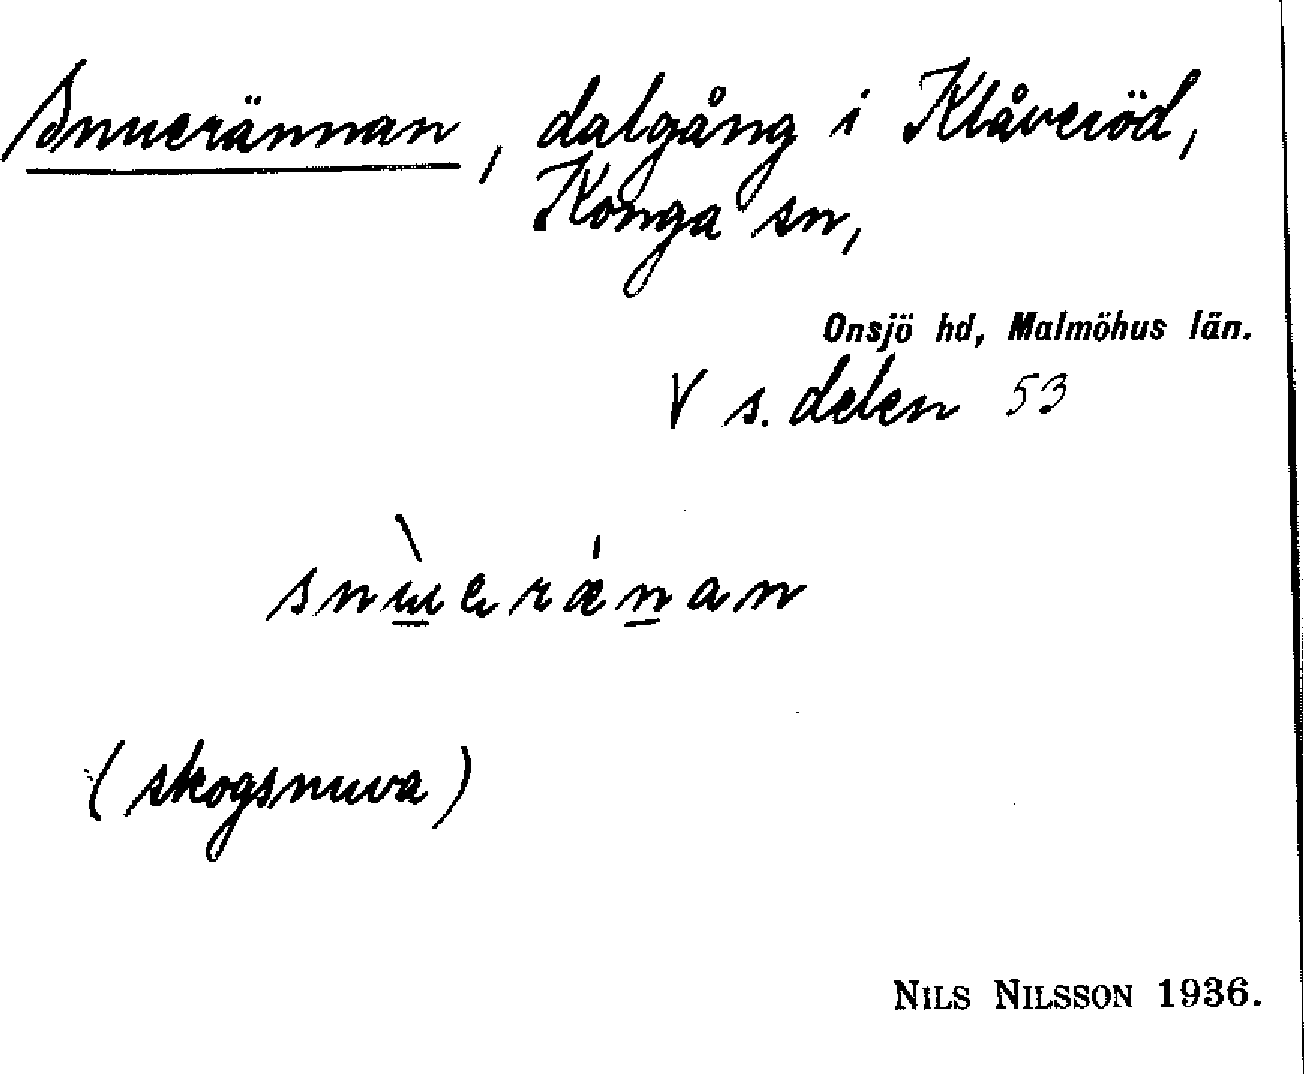 Snuerännan, dalgång i Klåveröd,
Konga sn,
Onsjö hd, Malmöhus län.
V s. delen 53
(skogsnuva)
NILS NILSSON 1936.